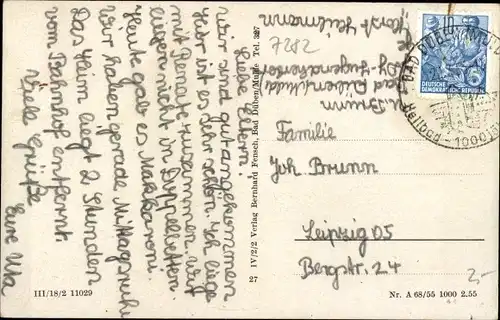 Liebe Eltern!
Wir sind gut angekommen.
Hier ist es sehr schön. Ich liege
mit Renate zusammen. Wir
liegen nicht in Doppelbetten.
Heute gab es Makkaroni.
Wir haben gerade Mittagsruhe
Das Heim liegt 2 Stunden
vom Bahnhof entfernt.
Viele Grüße
Eure Uta
27 IV/2/2 Verlag Bernhard Fensch, Bad Düben/Mulde Tel. 327
III/18/2 11029
7282
U. Brunn
Bad Düben/Mulde
Dj.-Jugendherberge
BAD DÜBEN (MULDE)
Heilbad - 1000
DEUTSCHE
DEMOKRATISCHE REPUBLIK
5
Familie
Joh Brunn
Leipzig O5
Bergstr. 24
2,-
Nr. A 68/55 1000 2.55